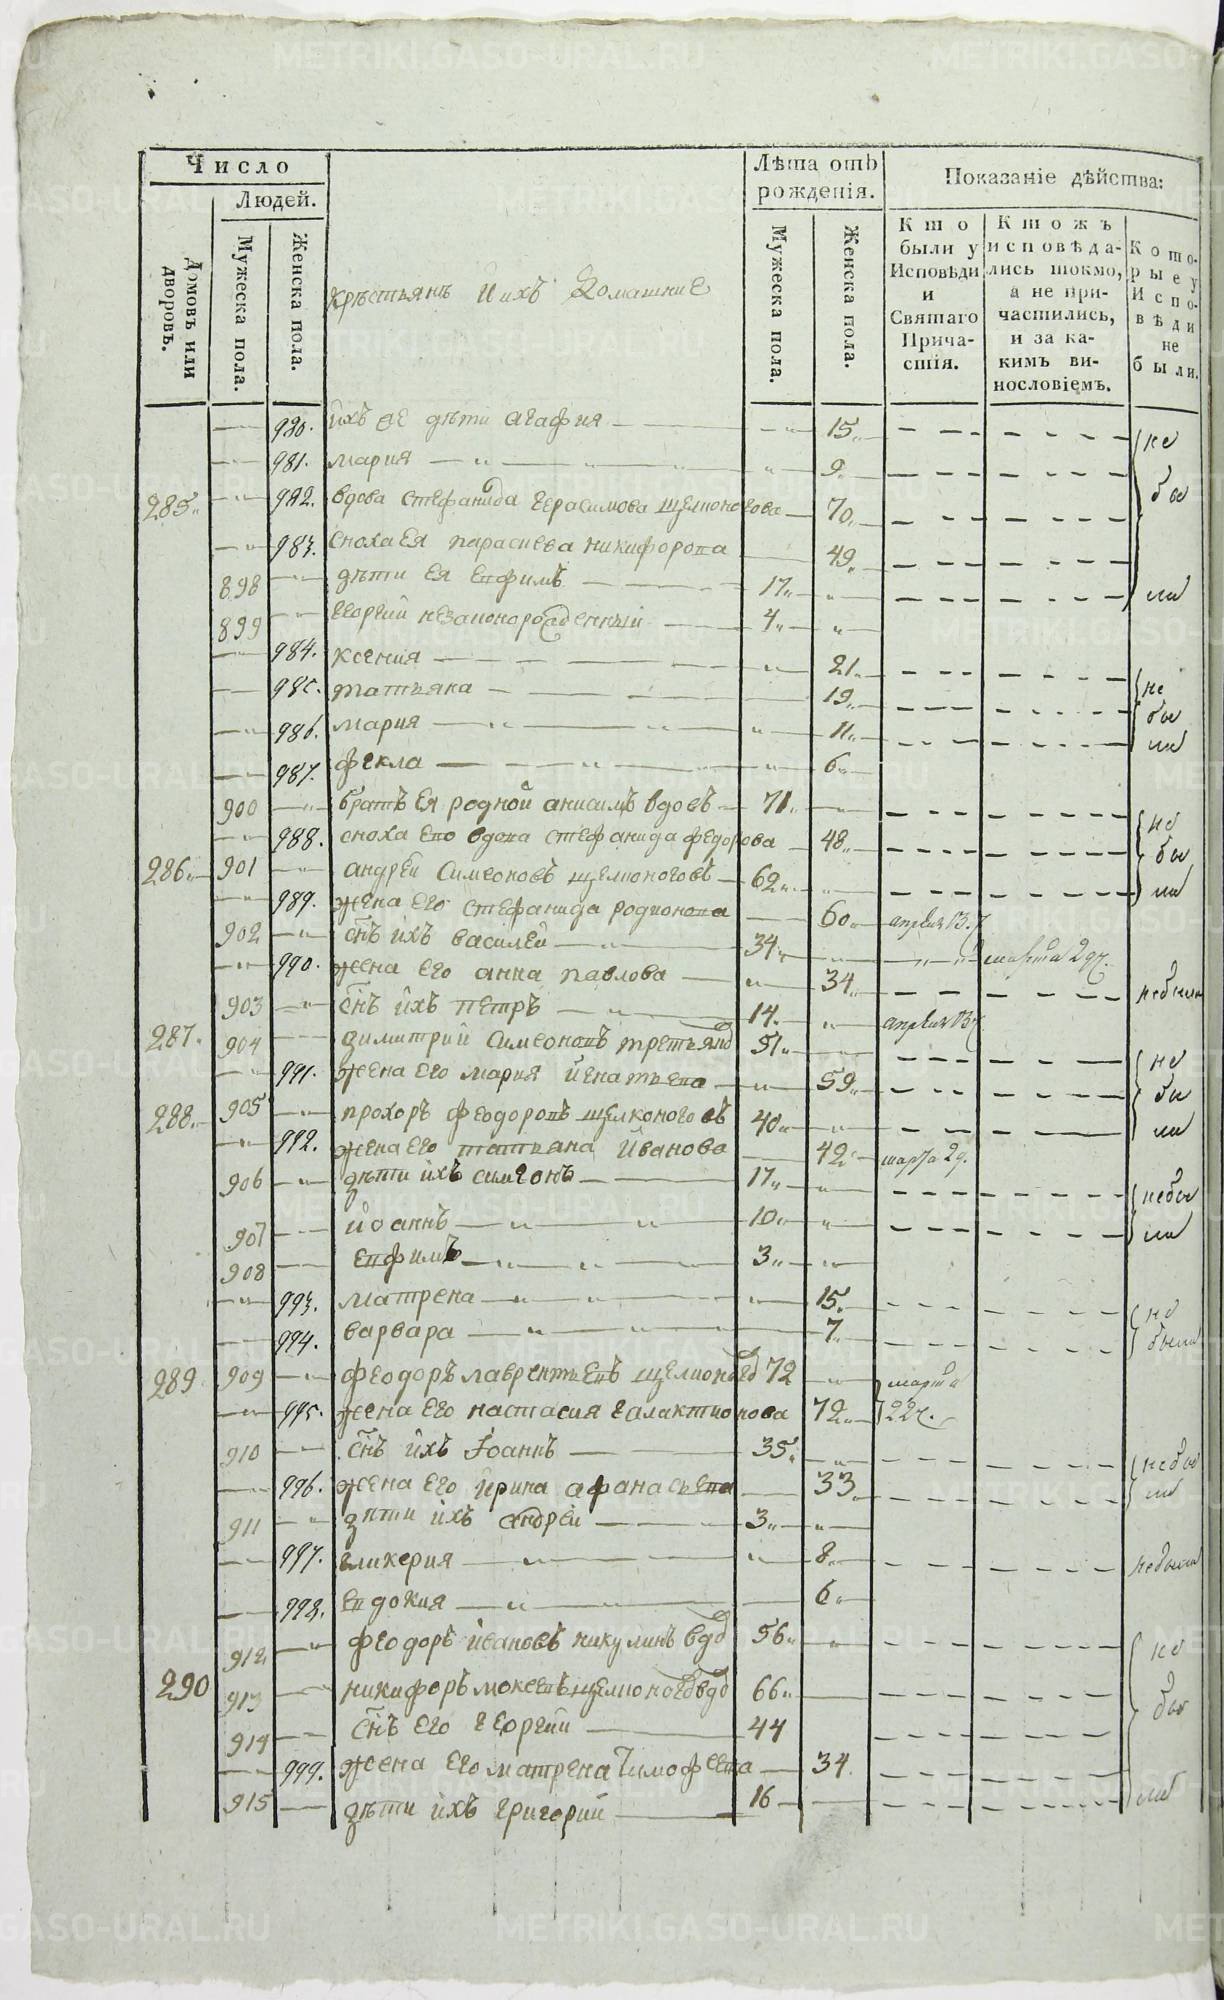 Число
Людей.
Домовъ или дворовъ.
Мужеска пола.
Женска пола.
Крестьянъ и ихъ домашние
Лѣта отъ рожденія.
Мужеска пола.
Женска пола.
Показаніе дѣйства:
Кто были у Исповѣди и Святаго Прича-стія.
Ктожъ исповѣда-лись токмо, а не при-частились, и за ка-кимъ ви-нословіемъ.
Кото-рые у Испо-вѣди не были.
980. ихъ дѣти агафия 15
981. мария 9 не
285 982. вдова стефанида герасимова щелконогова 70 бы
983. сноха ея параскева никифорова 49
898 дѣти ея ефимъ 17 ли
899 георгий незаконорожденный 4
984. ксения 21
985. татьяна 19 не
986. мария 11 бы ли
987. фекла 6
900 братъ ея родной анисимъ вдовъ 71
988. сноха его вдова стефанида федорова 48 не бы
286 901 андрей симеоновъ щелконоговъ 62 ли
989. жена его стефанида родионова 60 апреля 13
902 снъ ихъ василей 34 марта 29
990. жена его анна павлова 34 небыли
903 снъ ихъ петръ 14 апреля 13
287. 904 димитрий симеоновъ 51 не
991. жена его мария игнатьева 59 бы
288 905 прохоръ феодоровъ щелконоговъ 40 ли
992. жена его татьяна иванова 42 марта 29.
906 дѣти ихъ симеонъ 17 небы
907 иоаннъ 10 ли
908 евфимъ 3
993. матрена 15 не
994. варвара 7 были
289 909 феодоръ лаврентьевъ щелконоговъ 72 марта
995. жена его настасия галактионова 72 22
910 снъ ихъ иоаннъ 35 небы
996. жена его ирина афанасьева 33 ли
911 дѣти ихъ андрей 3
997. гликерия 8 небыли
998. евдокия 6
912 феодоръ ивановъ никулинъ вдв 56 не
290 913 никифоръ мокеевъ щелконоговъ вдв 66 бы
914 снъ его георгий 44
999. жена его матрена тимофеева 34
915 дѣти ихъ григорий 16 ли